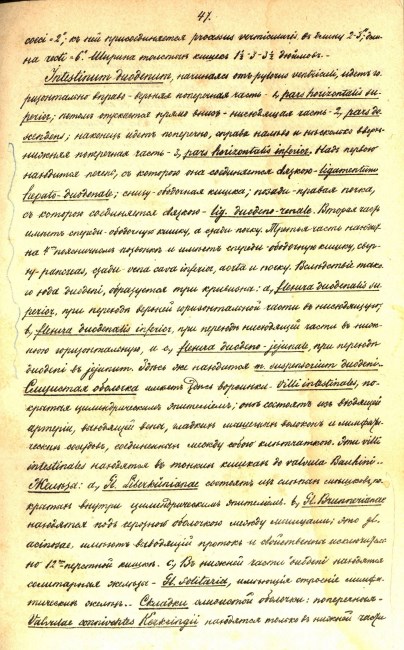 47.
coeci - 2"; къ ней присоединяется processus vermicularis, въ длину 2-5", длина recti - 6". Ширина толстыхъ кишекъ 1½-3-3½ дюймовъ.
Intestinum duodenum, начиная отъ pylorus ventriculi, идетъ го-
ризонтально вправо - верхняя поперечная часть - 1, pars horizontalis su-
perior; потомъ спускается прямо внизъ - нисходящая часть - 2, pars de-
scendens; наконецъ идетъ поперечно, справа налево и несколько вверхъ -
нижняя поперечная часть - 3, pars horizontalis inferior. Надъ первою
находится печень, съ которою она соединяется связкою - ligamentum
hepato-duodenale; снизу - ободочная кишка; позади - правая почка,
съ которою соединяется связкою - lig. duodeno-renale. Вторая часть
имеетъ спереди - ободочную кишку, а сзади почку. Третья часть находит.
на 4мъ поясничномъ позвонке и имеетъ спереди - ободочную кишку, свер-
ху - pancreas, сзади vena cava inferior, aorta и почку. Вследствіе тако-
го хода duodeni, образуется три кривизны: a, flexura duodenalis su-
perior, при переходе верхней горизонтальной части въ нисходящую;
b, flexura duodenalis inferior, при переходе нисходящей части въ ниж-
нюю горизонтальную, и c, flexura duodeno-jejunalis, при переходе
duodeni въ jejunum. Здесь же находится m. suspensorium duodeni.
Слизистая оболочка имеетъ здесь ворсинки - Villi intestinales, по-
крытыя цилиндрическимъ эпителіемъ; они состоятъ изъ входящей
артеріи, выходящей вены, гладкихъ мышечныхъ волоконъ и лимфати-
ческихъ сосудовъ, соединенныхъ между собою клетчаткою. Эти villi
intestinales находятся въ тонкихъ кишкахъ до valvula Bauhini. -
Железы: a, Gl. Lieberkühnianae состоятъ изъ слепыхъ мешковъ, по-
крытыхъ внутри цилиндрическимъ эпителіемъ. b, Gl. Brunnerianae
находятся подъ серозной оболочкою между мышцами; это gl.
acinosae, имеютъ выводящій протокъ и свойственны исключитель-
но 12ти-перстной кишке. c, Въ нижней части duodeni находятся
солитарныя железы - Gl. Solitaria, имеющія строеніе лимфа-
тическихъ железъ. - Складки слизистой оболочки: поперечныя -
Valvulae conniventes Kerkringii находятся только въ нижней части